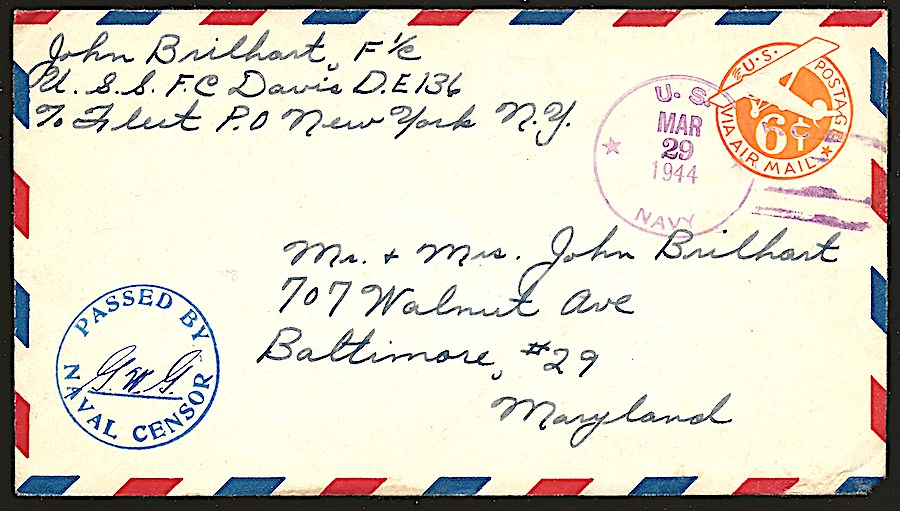 John Brilhart, F 1/c
U.S.S. F.C Davis D.E 136
℅ Fleet P.O New York N.Y.
U.S. POSTAGE
6¢
VIA AIR MAIL
U.S.
MAR
29
1944
NAVY
Mr. + Mrs. John Brilhart
707 Walnut Ave
Baltimore, #29
Maryland
PASSED BY
G.W.G.
NAVAL CENSOR